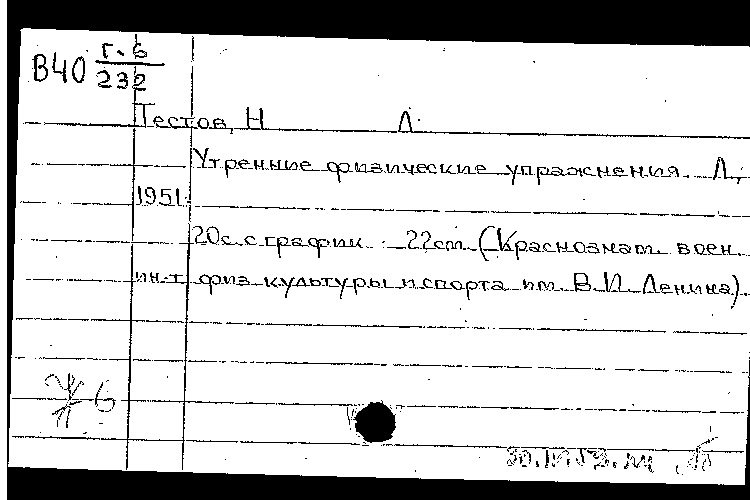 В40 Г.6
232
Тестов, Н Л.
Утренние физические упражнения. Л.,
1951.
20с. с график. 22cm (Краснознам. воен.
ин-т физ культуры и спорта им. В.И. Ленина).
Ж 6